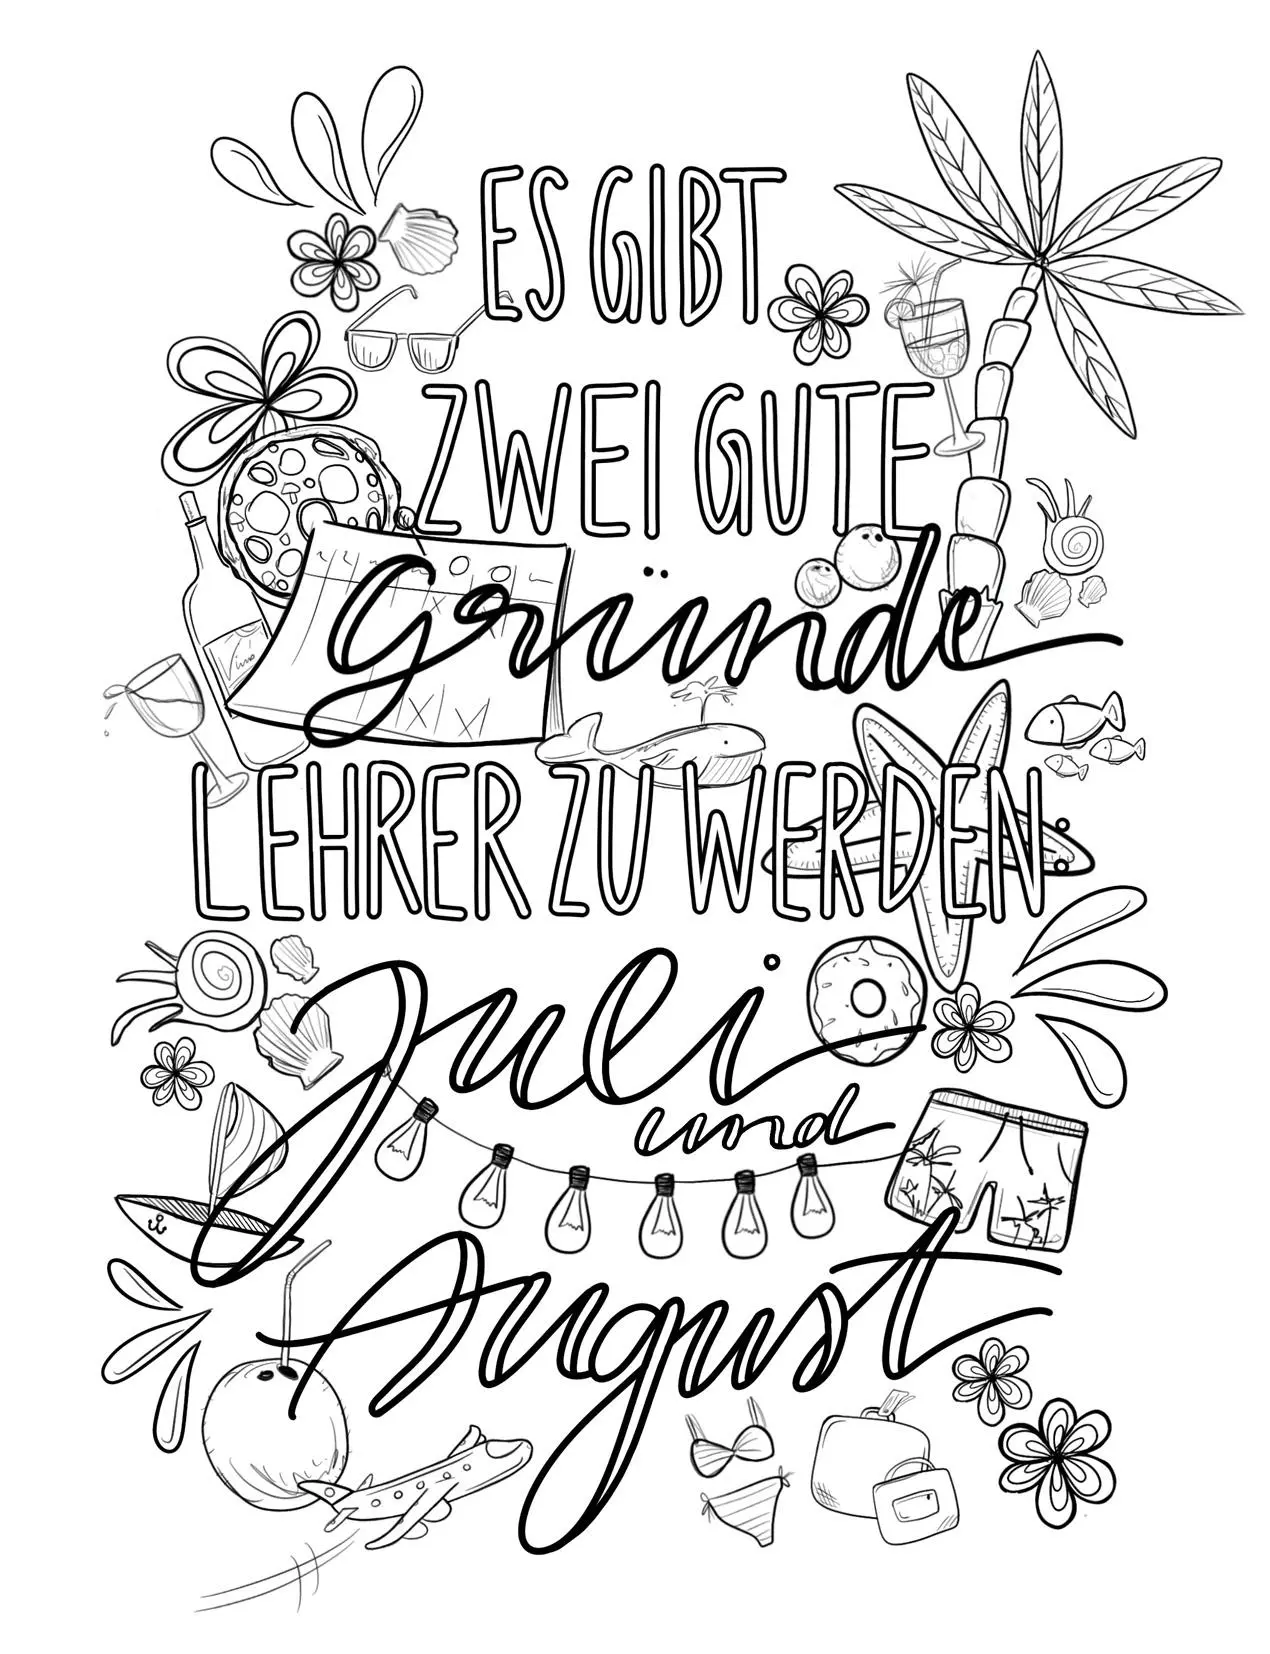 ES GIBT
ZWEI GUTE
Gründe
Vino
LEHRER ZU WERDEN
Juli
und
August